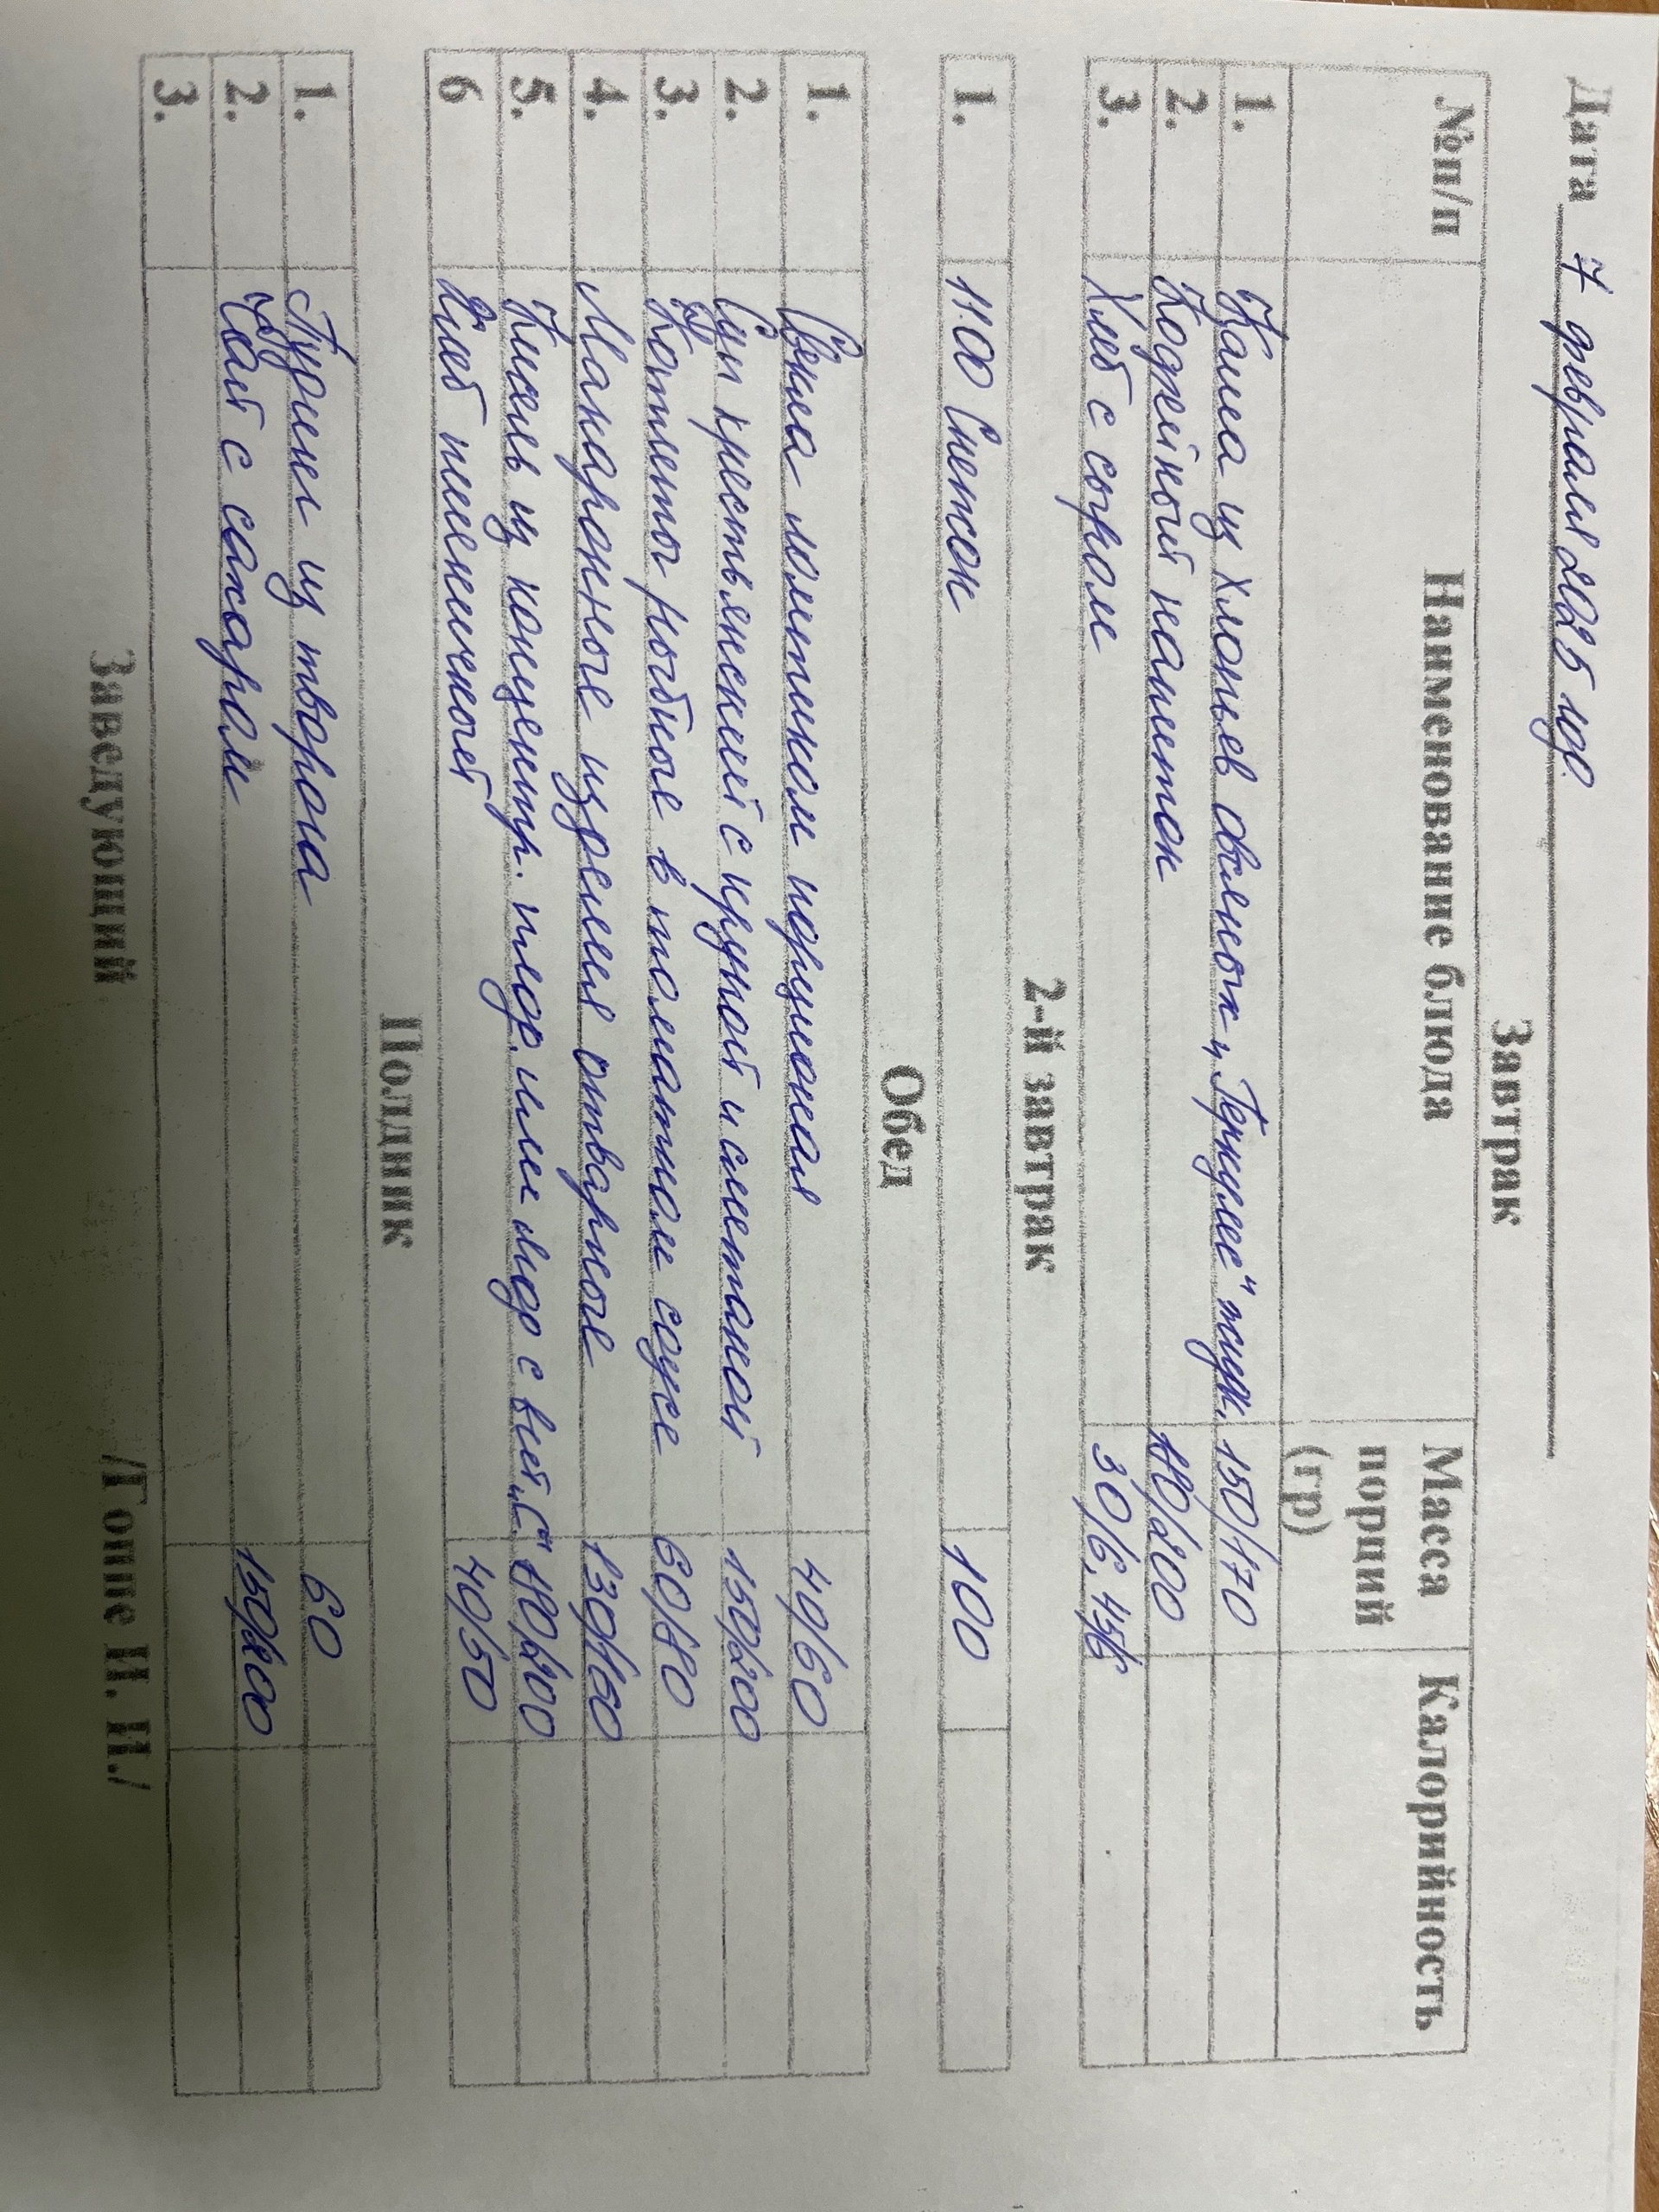 Дата 7 февраля 2025 год.
Завтрак
№п/п Наименование блюда Масса порций (гр) Калорийность
1. Каша из хлопьев овсяных „Геркулес" жидк. 150/170
2. Кофейный напиток 180/200
3. Хлеб с сыром 30/6, 45/6
2-й завтрак
1. 11:00 Снежок 100
Обед
1. Свекла ломтиком порционая 40/60
2. Суп крестьянский с крупой и сметаной 150/200
3. Котлеты рыбные в томатном соусе 60/80
4. Макаронные изделия отварные 130/150
5. Кисель из концентр. плод. или ягод с вит. „С" 180/200
6 Хлеб пшеничной 40/50
Полдник
1. Пудинг из творога 60
2. Чай с сахаром 150/200
3.
Заведующий /Гоппе И. И./